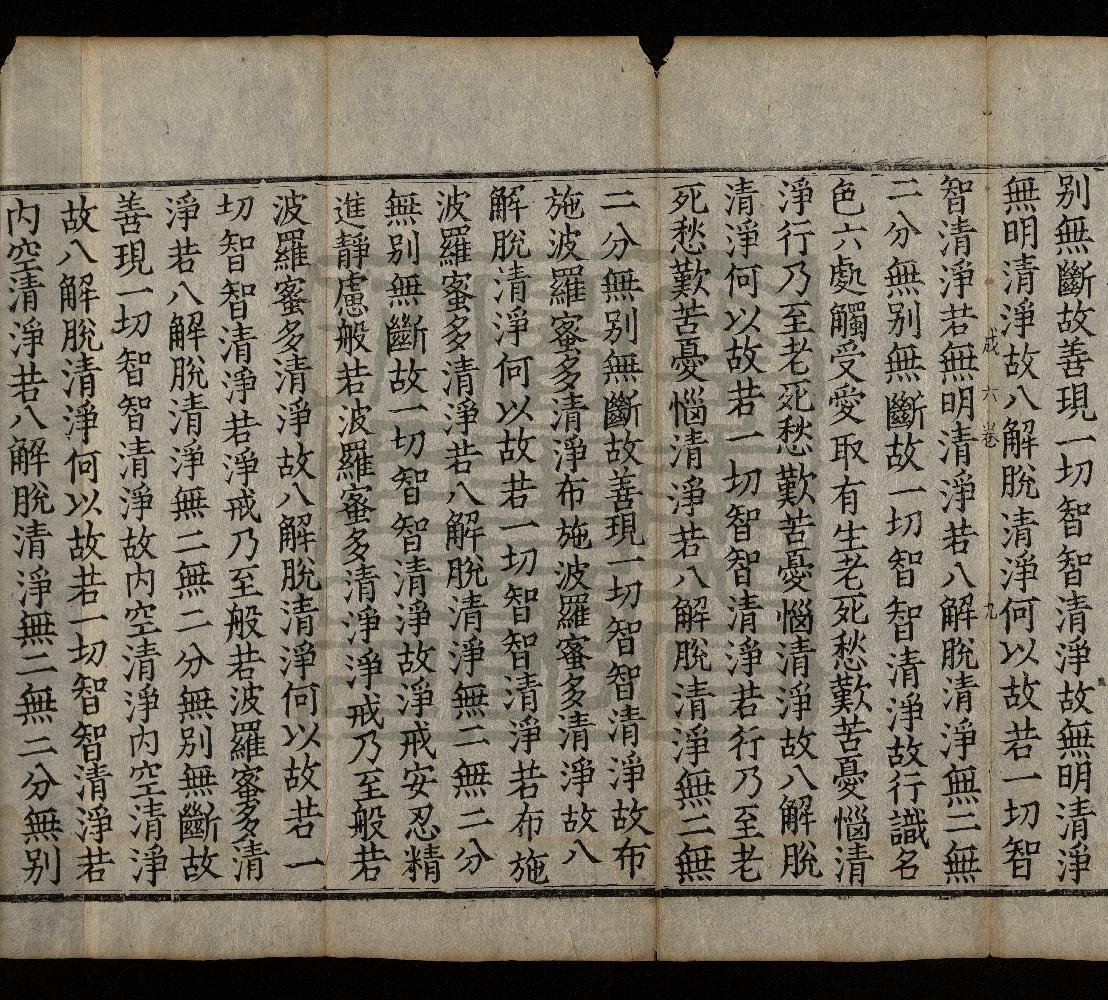 别無斷故善現一切智智清淨故無明清淨
無明清淨故八解脫清淨何以故若一切智
成 六卷 九
智清淨若無明清淨若八解脫清淨無二無
二分無别無斷故一切智智清淨故行識名
色六處觸受愛取有生老死愁歎苦憂惱清
淨行乃至老死愁歎苦憂惱清淨故八解脫
清淨何以故若一切智智清淨若行乃至老
死愁歎苦憂惱清淨若八解脫清淨無二無
二分無别無斷故善現一切智智清淨故布
施波羅蜜多清淨布施波羅蜜多清淨故八
解脫清淨何以故若一切智智清淨若布施
波羅蜜多清淨若八解脫清淨無二無二分
無别無斷故一切智智清淨故淨戒安忍精
進靜慮般若波羅蜜多清淨淨戒乃至般若
波羅蜜多清淨故八解脫清淨何以故若一
切智智清淨若淨戒乃至般若波羅蜜多清
淨若八解脫清淨無二無二分無别無斷故
善現一切智智清淨故内空清淨内空清淨
故八解脫清淨何以故若一切智智清淨若
内空清淨若八解脫清淨無二無二分無别